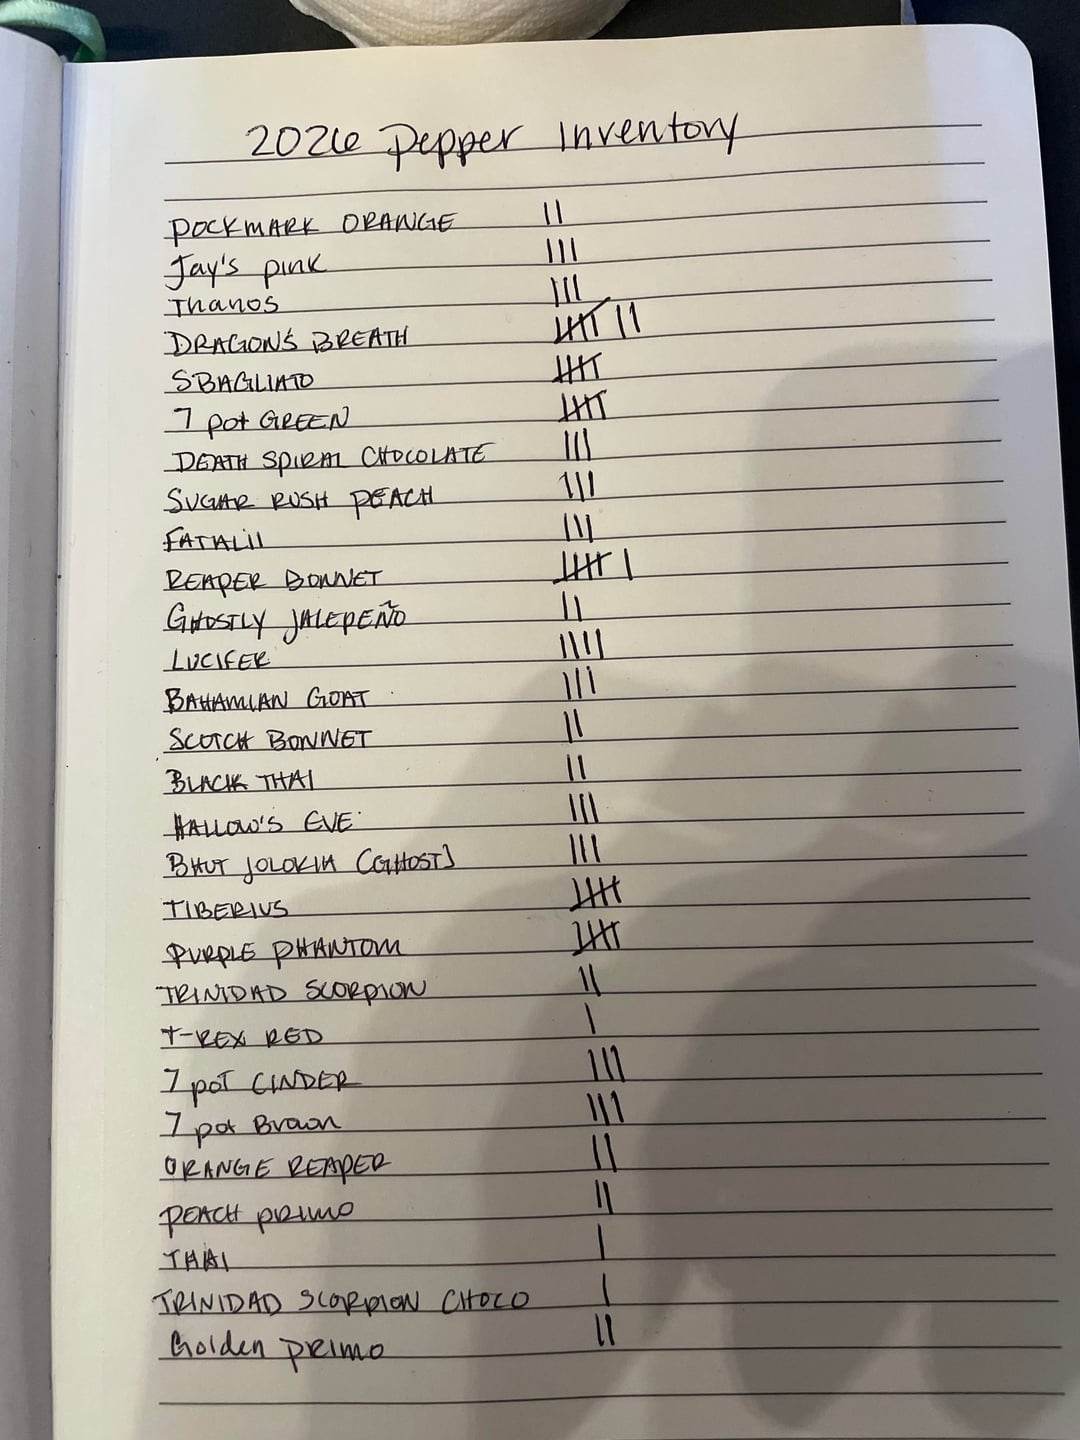 2026 Pepper Inventory
POCKMARK ORANGE II
Jay's pink III
Thanos III
DRAGON'S BREATH IIII II
SBAGLIATO IIII
7 pot GREEN IIII
DEATH SPIRAL CHOCOLATE III
SUGAR RUSH PEACH III
FATALii III
REAPER BONNET IIII I
GHOSTLY JALEPEÑO II
LUCIFER IIII
BAHAMIAN GOAT III
SCOTCH BONNET II
BLACK THAI II
HALLOW'S EVE III
BHUT JOLOKIA (GHOST) III
TIBERIUS IIII
PURPLE PHANTOM IIII
TRINIDAD SCORPION II
T-REX RED I
7 poT CINDER III
7 pot Brown III
ORANGE REAPER II
PEACH PRIMO II
THAI I
TRINIDAD SCORPION CHOCO I
Golden PRIMO II